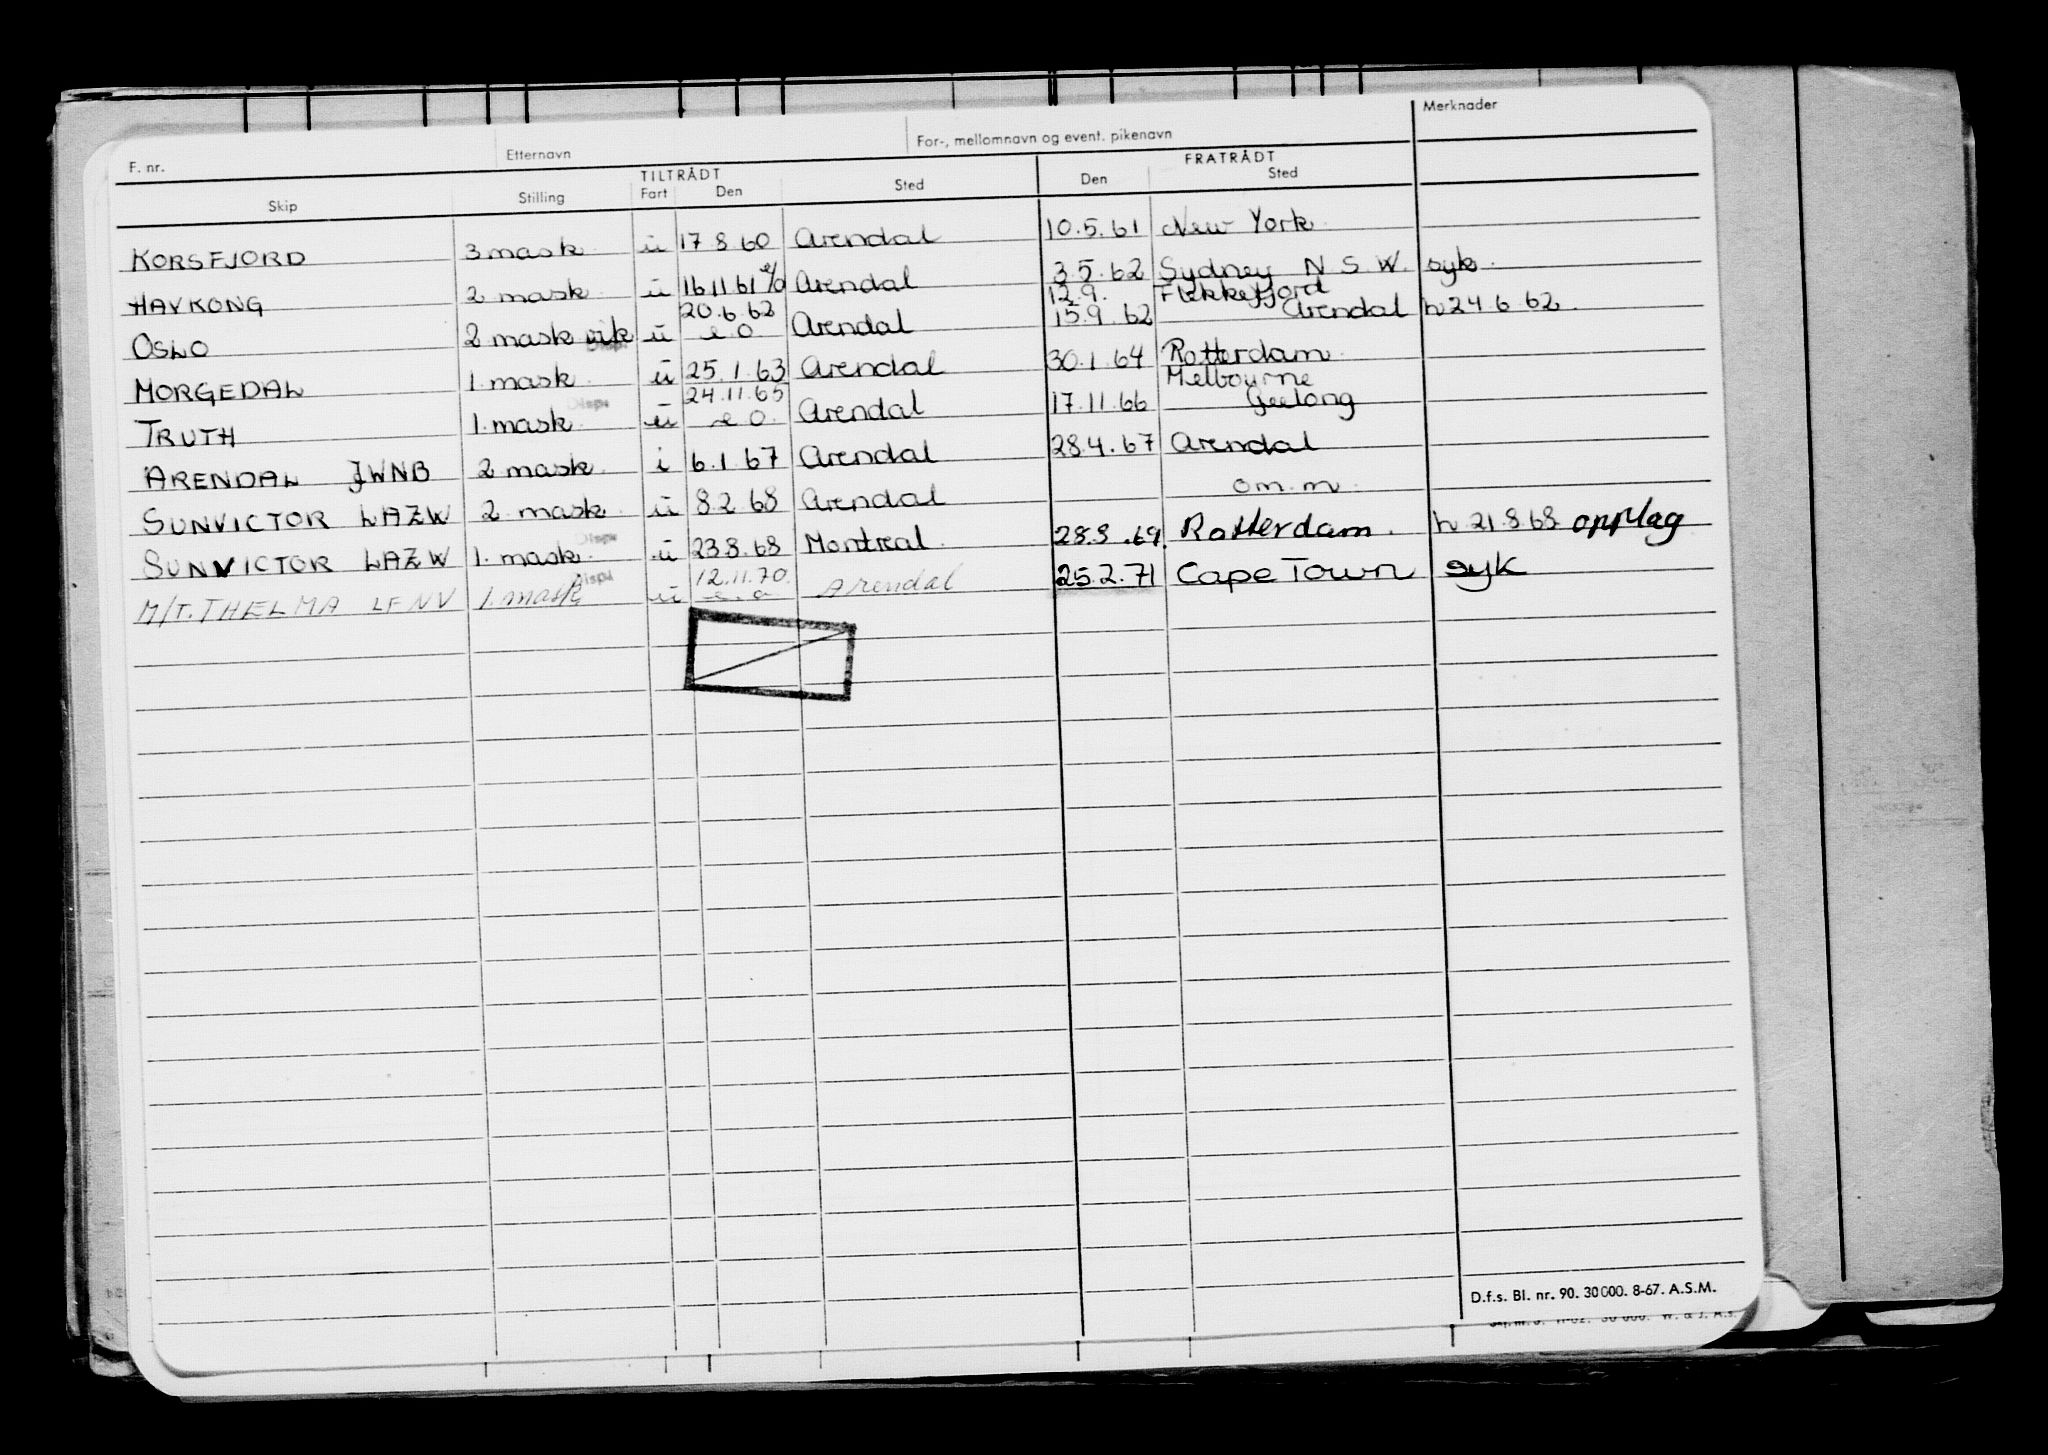 F. nr. Etternavn For-, mellomnavn og event. pikenavn Merknader
TILTRÅDT FRATRÅDT
Skip Stilling Fart Den Sted Den Sted
KORSFJORD 3 mask u 17.8.60 Arendal 10.5.61 New York
HAVKONG 2 mask u 16.11.61 e/o Arendal 3.5.62 Sydney N.S.W. syk.
20.6.62 12.9. Flekkefjord
OSLO 2 mask vik Disp. u e.o. Arendal 15.9.62 Arendal h 24.6.62.
MORGEDAL 1. mask u 25.1.63 Arendal 30.1.64 Rotterdam
24.11.65 Melbourne
TRUTH 1. mask Disp. u e.o. Arendal 17.11.66 Geelong
ARENDAL JWNB 2 mask i 6.1.67 Arendal 28.4.67 Arendal
SUNVICTOR LAZW 2. mask u 8.2.68 Arendal om.m.
SUNVICTOR LAZW 1. mask Disp. u 23.8.68 Montreal 28.8.69. Rotterdam. h 21.8.68 opplag
12.11.70.
M/T. THELMA LFNV 1. mask Disp. u e.o. Arendal 25.2.71 Cape Town syk
D.f.s. Bl. nr. 90. 30 000. 8-67. A.S.M.